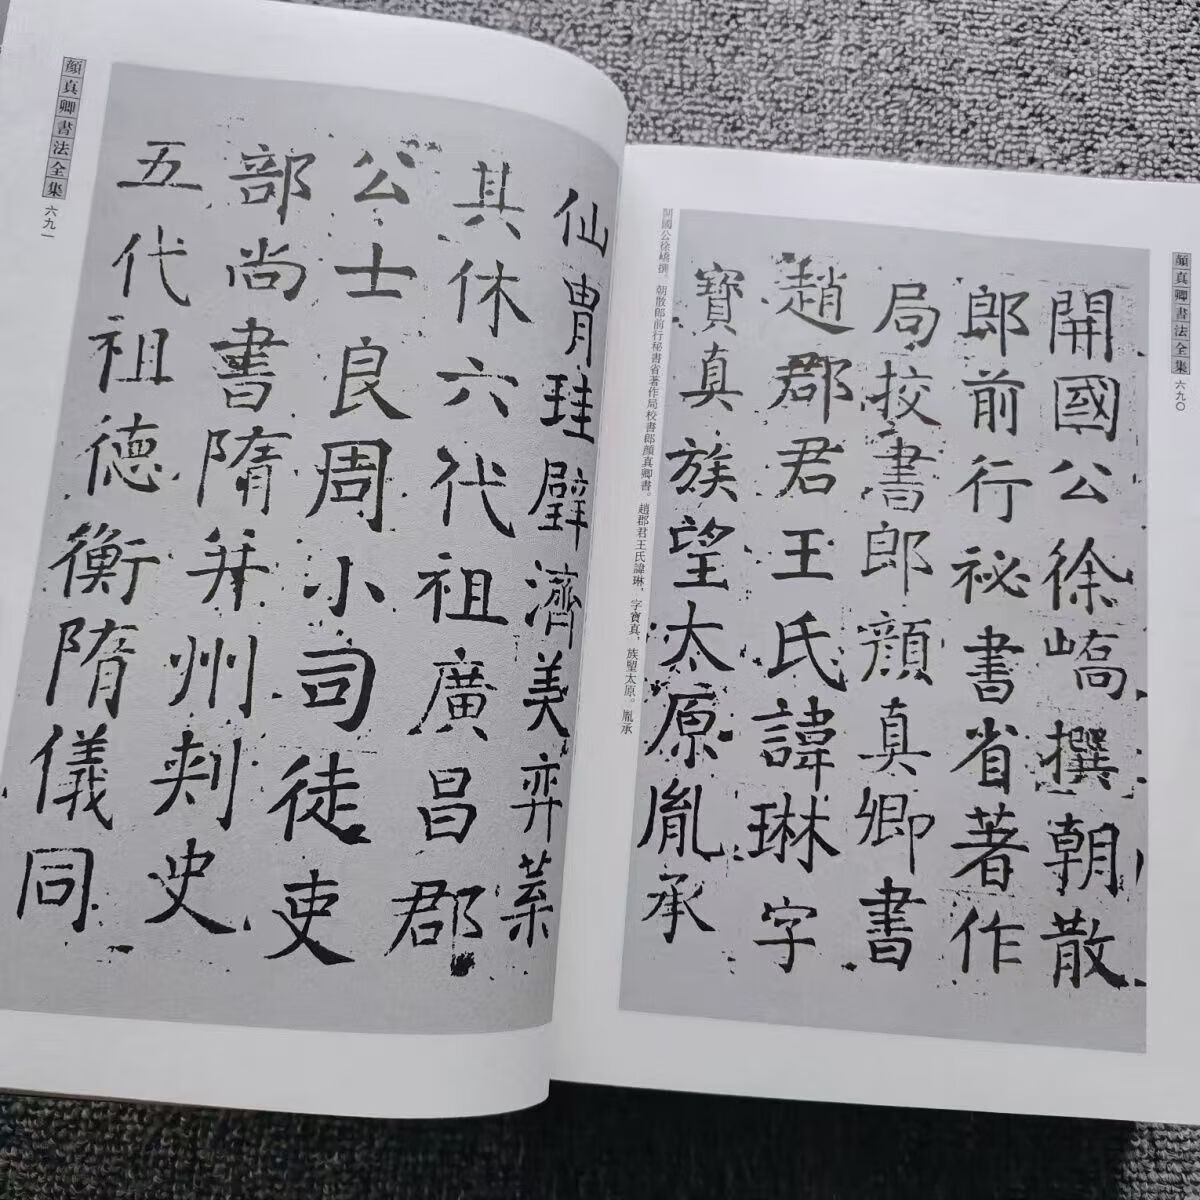 顏真卿書法全集
六九〇
開國公徐嶠撰朝散
郎前行祕書省著作
局校書郎顏真卿書
趙郡君王氏諱琳字
寶真族望太原胤承
開國公徐嶠撰。朝散郎前行秘書省著作局校書郎顏真卿書。趙郡君王氏諱琳，字寶真，族望太原。胤承
仙胄珪璧濟美弈葉
其休六代祖廣昌郡
公士良周小司徒吏
部尚書隋并州刺史
五代祖德衡隋儀同
顏真卿書法全集
六九一